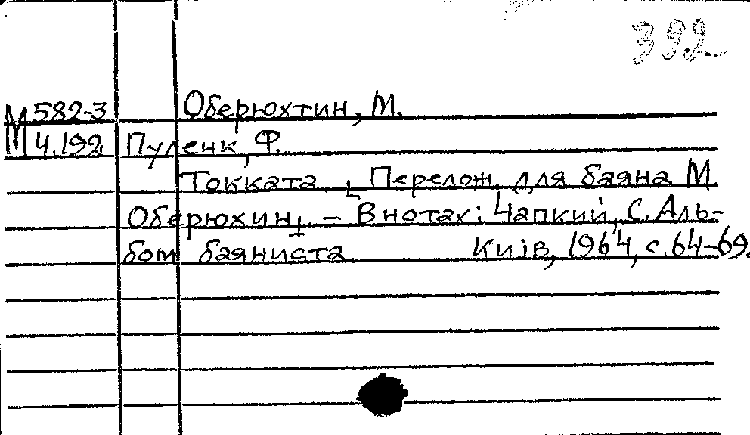 392
М 582-3 Оберюхтин, М.
4.192 Пуленк, Ф.
Токката. Перелож. для баяна М.
Оберюхин. – В нотах: Чапкий, С. Аль-
бом баяниста Київ, 1964, с. 64-69.